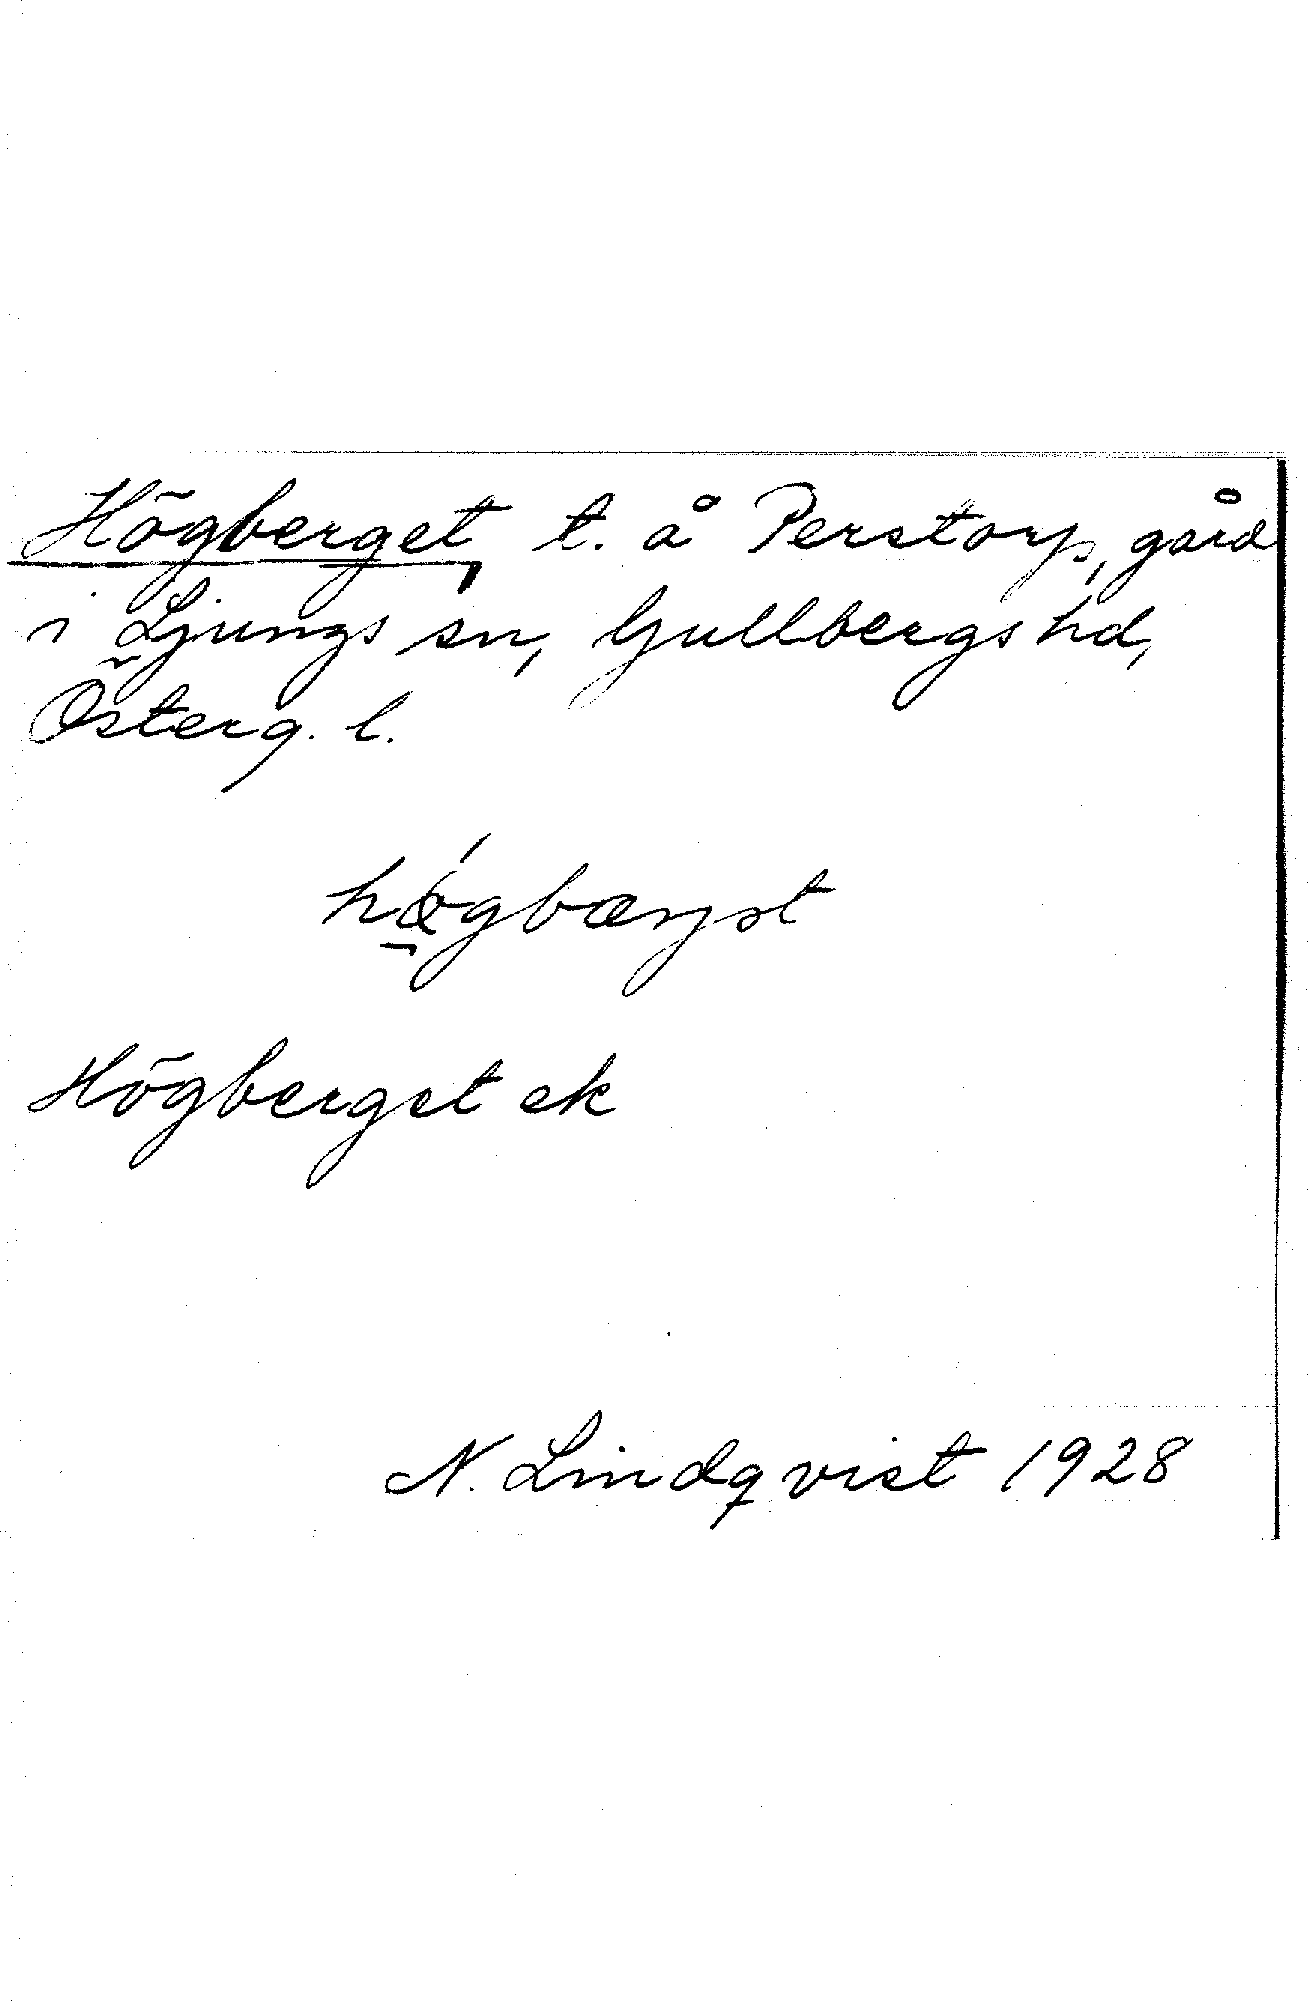 Högberget, t. å Perstorp, gård
i Ljungs sn, Gullbergs hd,
Österg. l.
Högberget ek
N. Lindqvist 1928